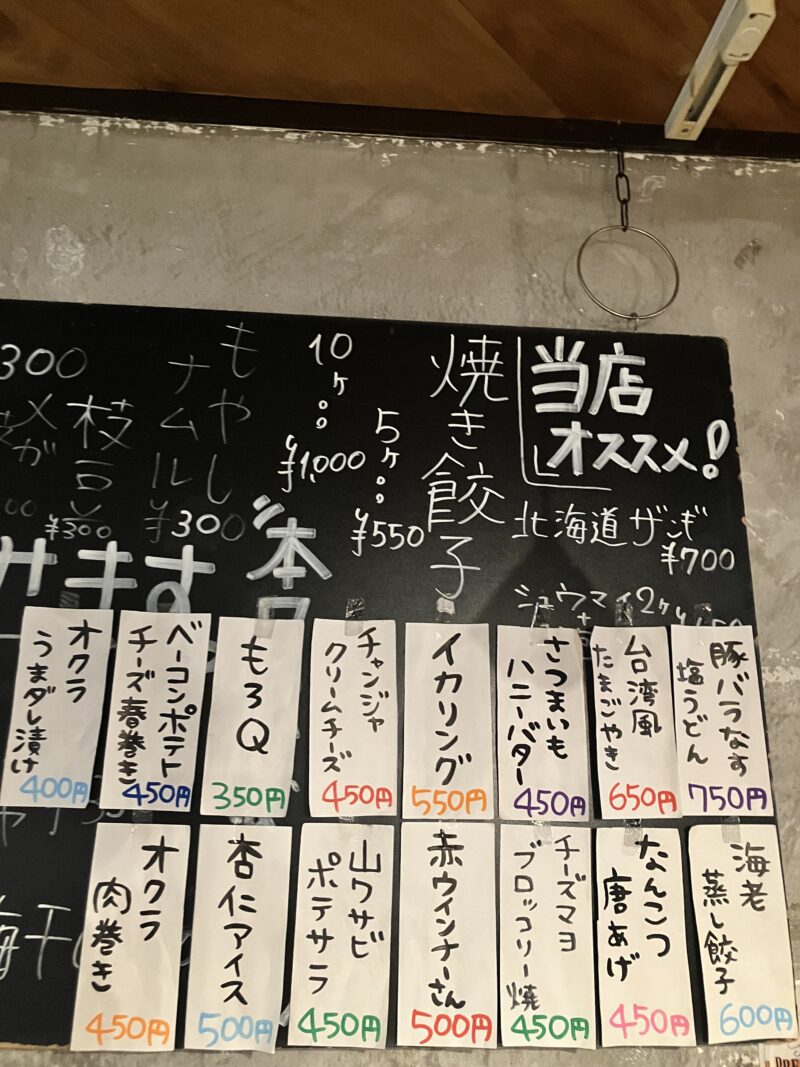 当店
オススメ!
北海道ザンギ
¥700
シュウマイ2ヶ
焼き餃子
5ヶ
¥550
10ヶ
¥1,000
もやし
ナムル
¥300
枝豆
¥300
300
本日
ます。
豚バラなす
塩うどん
750円
台湾風
たまごやき
650円
さつまいも
ハニーバター
450円
イカリング
550円
チャンジャ
クリームチーズ
450円
もろQ
350円
ベーコンポテト
チーズ春巻き
450円
オクラ
うまダレ漬け
400円
海老
蒸し餃子
600円
なんこつ
唐あげ
450円
チーズマヨ
ブロッコリー焼
450円
赤ウィンナーさん
500円
山ワサビ
ポテサラ
450円
杏仁アイス
500円
オクラ
肉巻き
450円